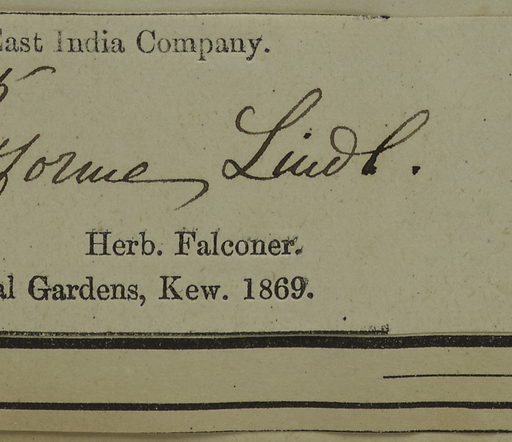 East India Company.
forme Lindl.
Herb. Falconer.
al Gardens, Kew. 1869.